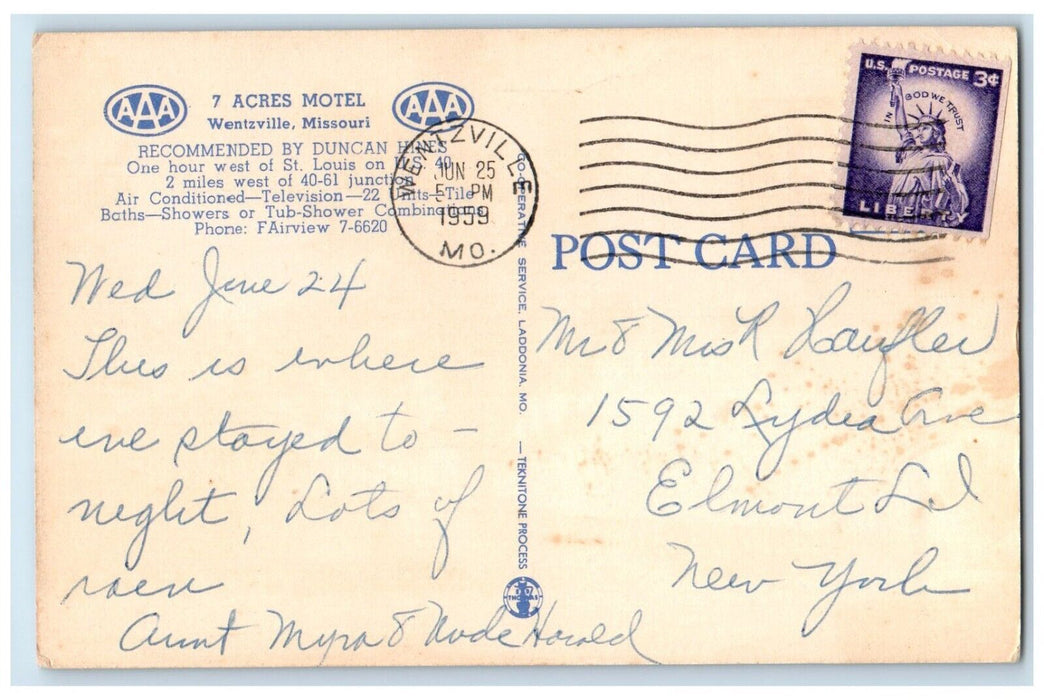 AAA 7 ACRES MOTEL AAA
Wentzville, Missouri
RECOMMENDED BY DUNCAN HINES
One hour west of St. Louis on U.S. 40
2 miles west of 40-61 junction
Air Conditioned—Television—22 Units—Tile
Baths—Showers or Tub-Shower Combinations
Phone: FAirview 7-6620
WENTZVILLE
JUN 25
5 PM
1959
MO.
U.S. POSTAGE 3¢
IN GOD WE TRUST
LIBERTY
POST CARD
CO-OPERATIVE SERVICE, LADDONIA, MO. — TEKNITONE PROCESS
THOMAS
Wed June 24
This is where
we stayed to -
night, Lots of
rain
Aunt Myra & Harold
Mr & Mrs R
1592 Lydia Ave
Elmont L I
New York